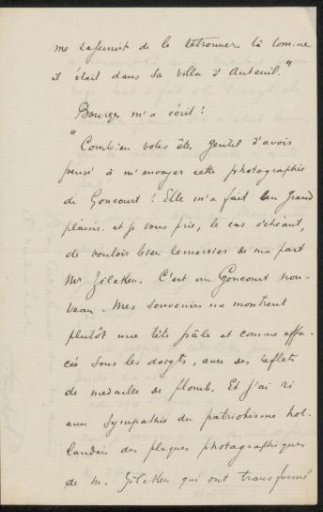 me ... de le retrouver là comme
il était dans sa villa d'Auteuil."
Bourges m'a écrit :
"Combien vous êtes gentil d'avois
pensé à m'envoyer cette photographie
de Goncourt ! Elle m'a fait un grand
plaisir et je vous prie, le cas échéant,
de vouloir bien remercier de ma part
Mr Zilcken. C'est un Goncourt nou-
veau. Mes souvenirs me montrent
plutôt une tête pâle et comme effa-
cée sous les doigts, avec des reflets
de médaille de plomb. Et j'ai ri
avec sympathie du patriotisme hol-
landais des plaques photographiques
de M. Zilcken qui ont transformé